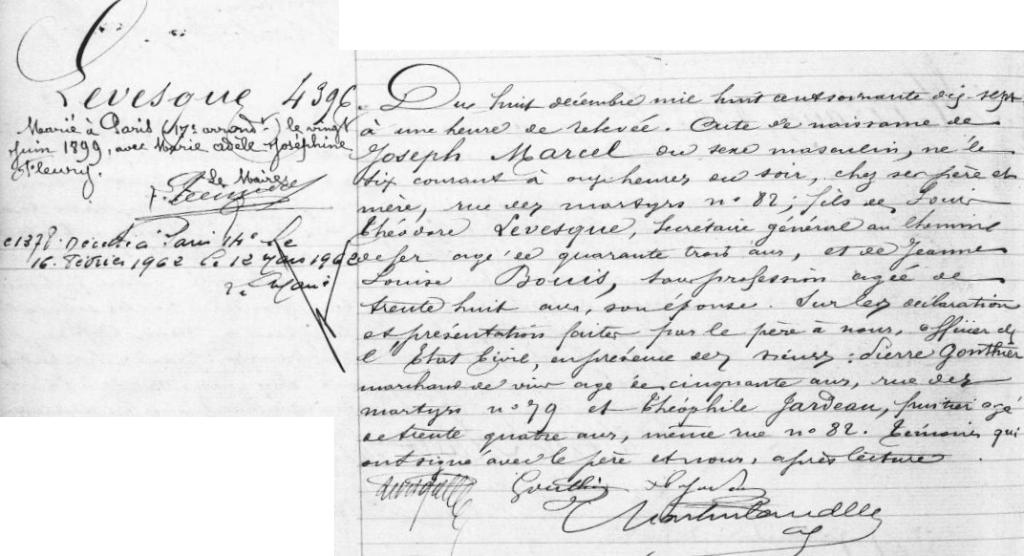 Levesque 4396.
Marié à Paris (17e arrondt) le vingt
juin 1899, avec Marie Adèle Joséphine
Fleury.
Le Maire
c137 Décédé à Paris 14e Le
16 Février 1962 Le 12 Mars 1962
Du huit décembre mil huit cent soixante dix sept
à une heure de relevée. Acte de naissance de
Joseph Marcel du sexe masculin, né le
six courant à onze heures du soir, chez ses père et
mère, rue des martyrs no 82; fils de Louis
Théodore Levesque, Secrétaire général au chemins
de fer agé de quarante trois ans, et de Jeanne
Louise Bouis, sans profession agée de
trente huit ans, son épouse. Sur les déclaration
et présentation faites par le père à nous, officier de
l'Etat Civil, en présence des sieurs: Pierre Gonthier
marchand de vin agé de cinquante ans, rue des
martyrs no 79 et Théophile Jardeau, fruitier agé
de trente quatre ans, même rue no 82. Témoins qui
ont signé avec le père et nous, après lecture